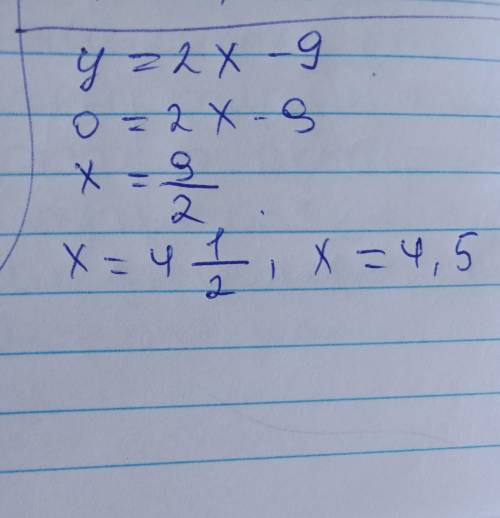 y = 2x - 9
0 = 2x - 9
x = 9/2
x = 4 1/2, x = 4,5